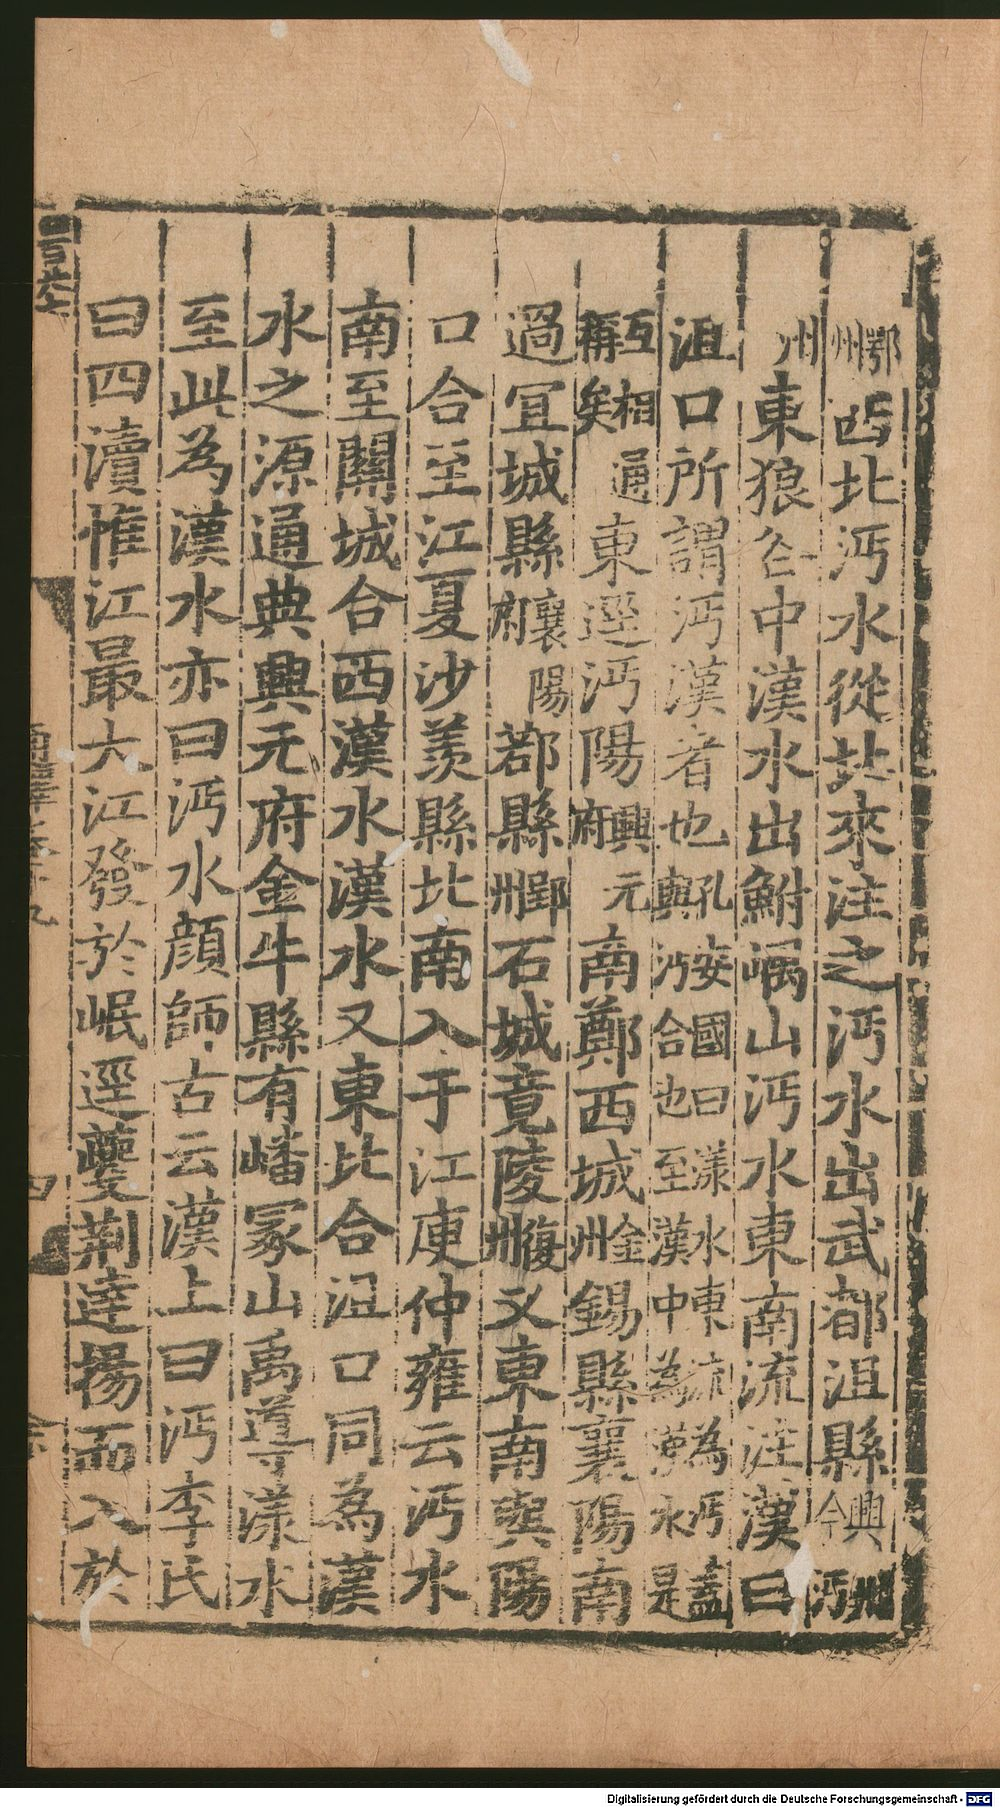 鄂州西北沔水從北來注之沔水出武都沮縣興州今沔
州東狼谷中漢水出鮒嵎山沔水東南流注漢曰
沮口所謂沔漢者也孔安國曰漾水東流為沔蓋與沔合也至漢中為漢水是
互相通稱矣東逕沔陽興元府南鄭西城金州錫縣襄陽南
過宜城縣襄陽府鄀縣郢州石城竟陵復州又東南與陽
口合至江夏沙羨縣北南入于江庾仲雍云沔水
南至關城合西漢水漢水又東北合沮口同為漢
水之源通典興元府金牛縣有嶓冢山禹導漾水
至此為漢水亦曰沔水顏師古云漢上曰沔李氏
曰四瀆惟江最大江發於岷逕夔荊達揚而入於
四
Digitalisierung gefördert durch die Deutsche Forschungsgemeinschaft - DFG